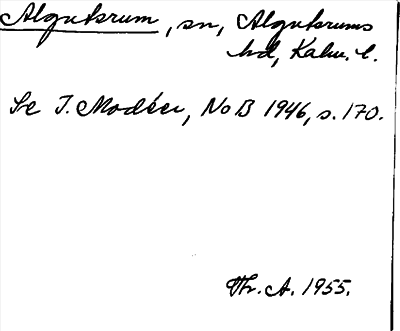 Algutsrum, sn, Algutsrums
hd, Kalm. l.
Se I. Modéer, NoB 1946, s. 170.
Thr. A. 1955.